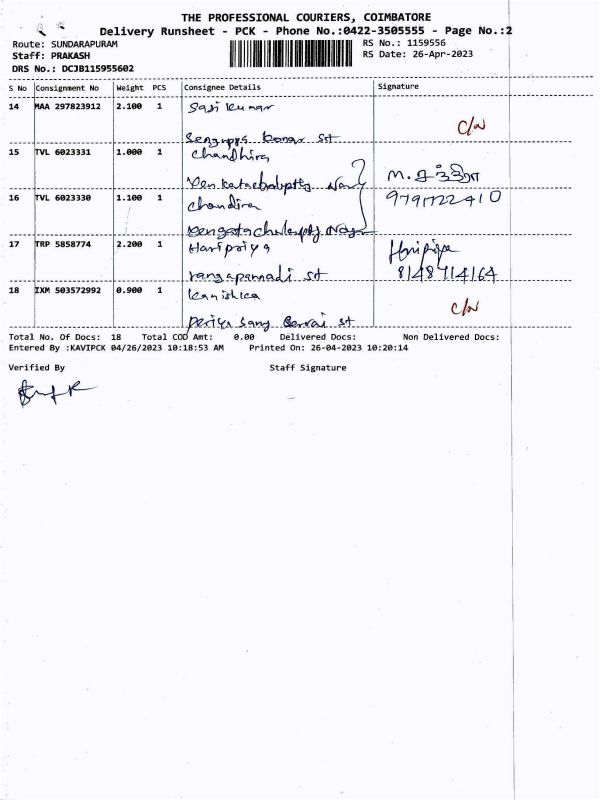 THE PROFESSIONAL COURIERS, COIMBATORE
Delivery Runsheet - PCK - Phone No.:0422-3505555 - Page No.:2
Route: SUNDARAPURAM
RS No.: 1159556
Staff: PRAKASH
RS Date: 26-Apr-2023
DRS No.: DCJB115955602
S No Consignment No Weight PCS Consignee Details Signature
14 MAA 297823912 2.100 1 Sasi Kumar
C/N
St
15 TVL 6023331 1.000 1 Chandhira
M. சந்திரா
16 TVL 6023330 1.100 1 Chandira
9791722410
17 TRP 5858774 2.200 1 Haripriya
8148714164
St
18 IXM 503572992 0.900 1 Kanishka
C/N
Periya Samy St
Total No. Of Docs: 18 Total COD Amt: 0.00 Delivered Docs: Non Delivered Docs:
Entered By :KAVIPCK 04/26/2023 10:18:53 AM Printed On: 26-04-2023 10:20:14
Verified By Staff Signature